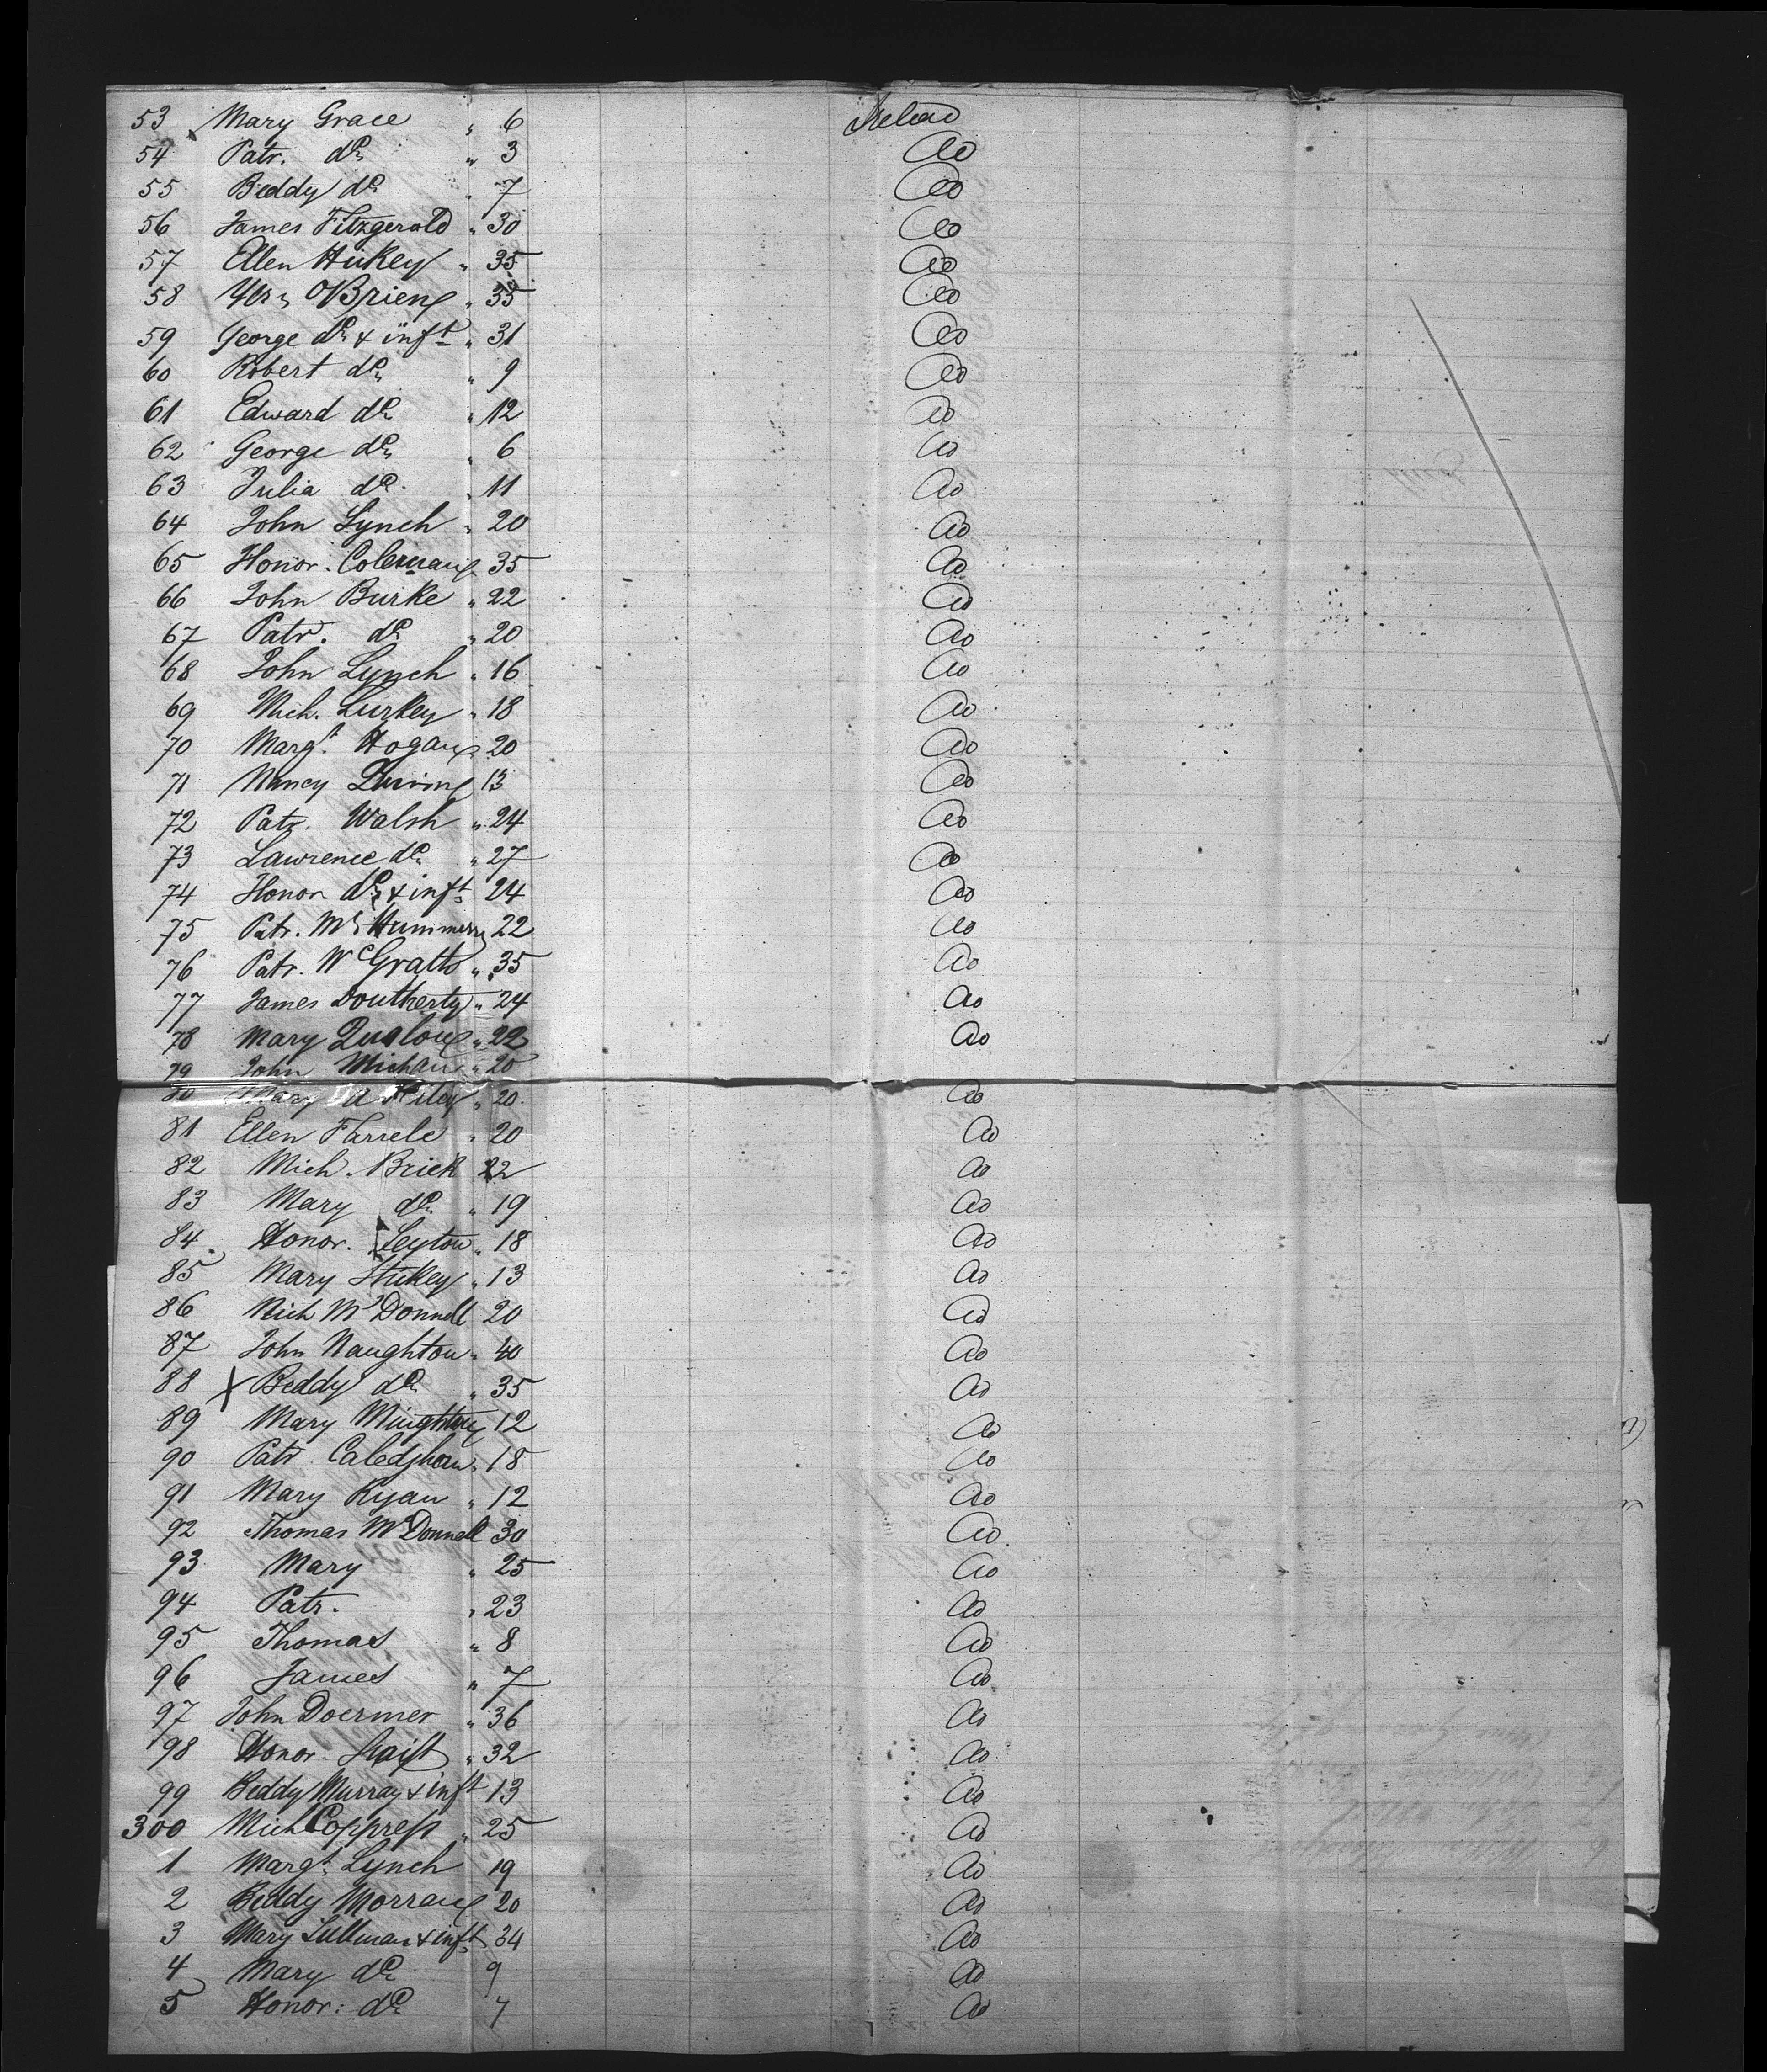 53 Mary Grace " 6 Ireland
54 Patr. do " 3 do
55 Beddy do " 7 do
56 James Fitzgerald " 30 do
57 Ellen Hickey " 35 do
58 O'Brien " 35 do
59 George do & inft " 31 do
60 Robert do " 9 do
61 Edward do " 12 do
62 George do " 6 do
63 Julia do " 11 do
64 John Lynch " 20 do
65 Honor. Coleman 35 do
66 John Burke " 22 do
67 Patr. do " 20 do
68 John Lynch " 16 do
69 Mich. Lurkey " 18 do
70 Margt. Hogan " 20 do
71 Nancy 13 do
72 Patr. Walsh " 24 do
73 Lawrence do " 27 do
74 Honor do & inft 24 do
75 Patr. 22 do
76 Patr. McGratto " 35 do
77 James Doutherty " 24 do
78 Mary " 22 do
79 John Michan " 20
80 Mary A Riley " 20 do
81 Ellen Farrele " 20 do
82 Mich. Brick 22 do
83 Mary do " 19 do
84 Honor. Leyton " 18 do
85 Mary Hickey " 13 do
86 Mich McDonnell 20 do
87 John Naughton " 40 do
88 X Beddy do " 35 do
89 Mary 12 do
90 Patr. " 18 do
91 Mary Ryan " 12 do
92 Thomas McDonnell 30 do
93 Mary " 25 do
94 Patr. " 23 do
95 Thomas " 8 do
96 James " 7 do
97 John Doermer " 36 do
98 Honor. " 32 do
99 Beddy Murray & inft 13 do
300 Mich Coppress " 25 do
1 Margt. Lynch 19 do
2 Beddy Morran 20 do
3 Mary Lullman & inft 34 do
4 Mary do 9 do
5 Honor: do 7 do